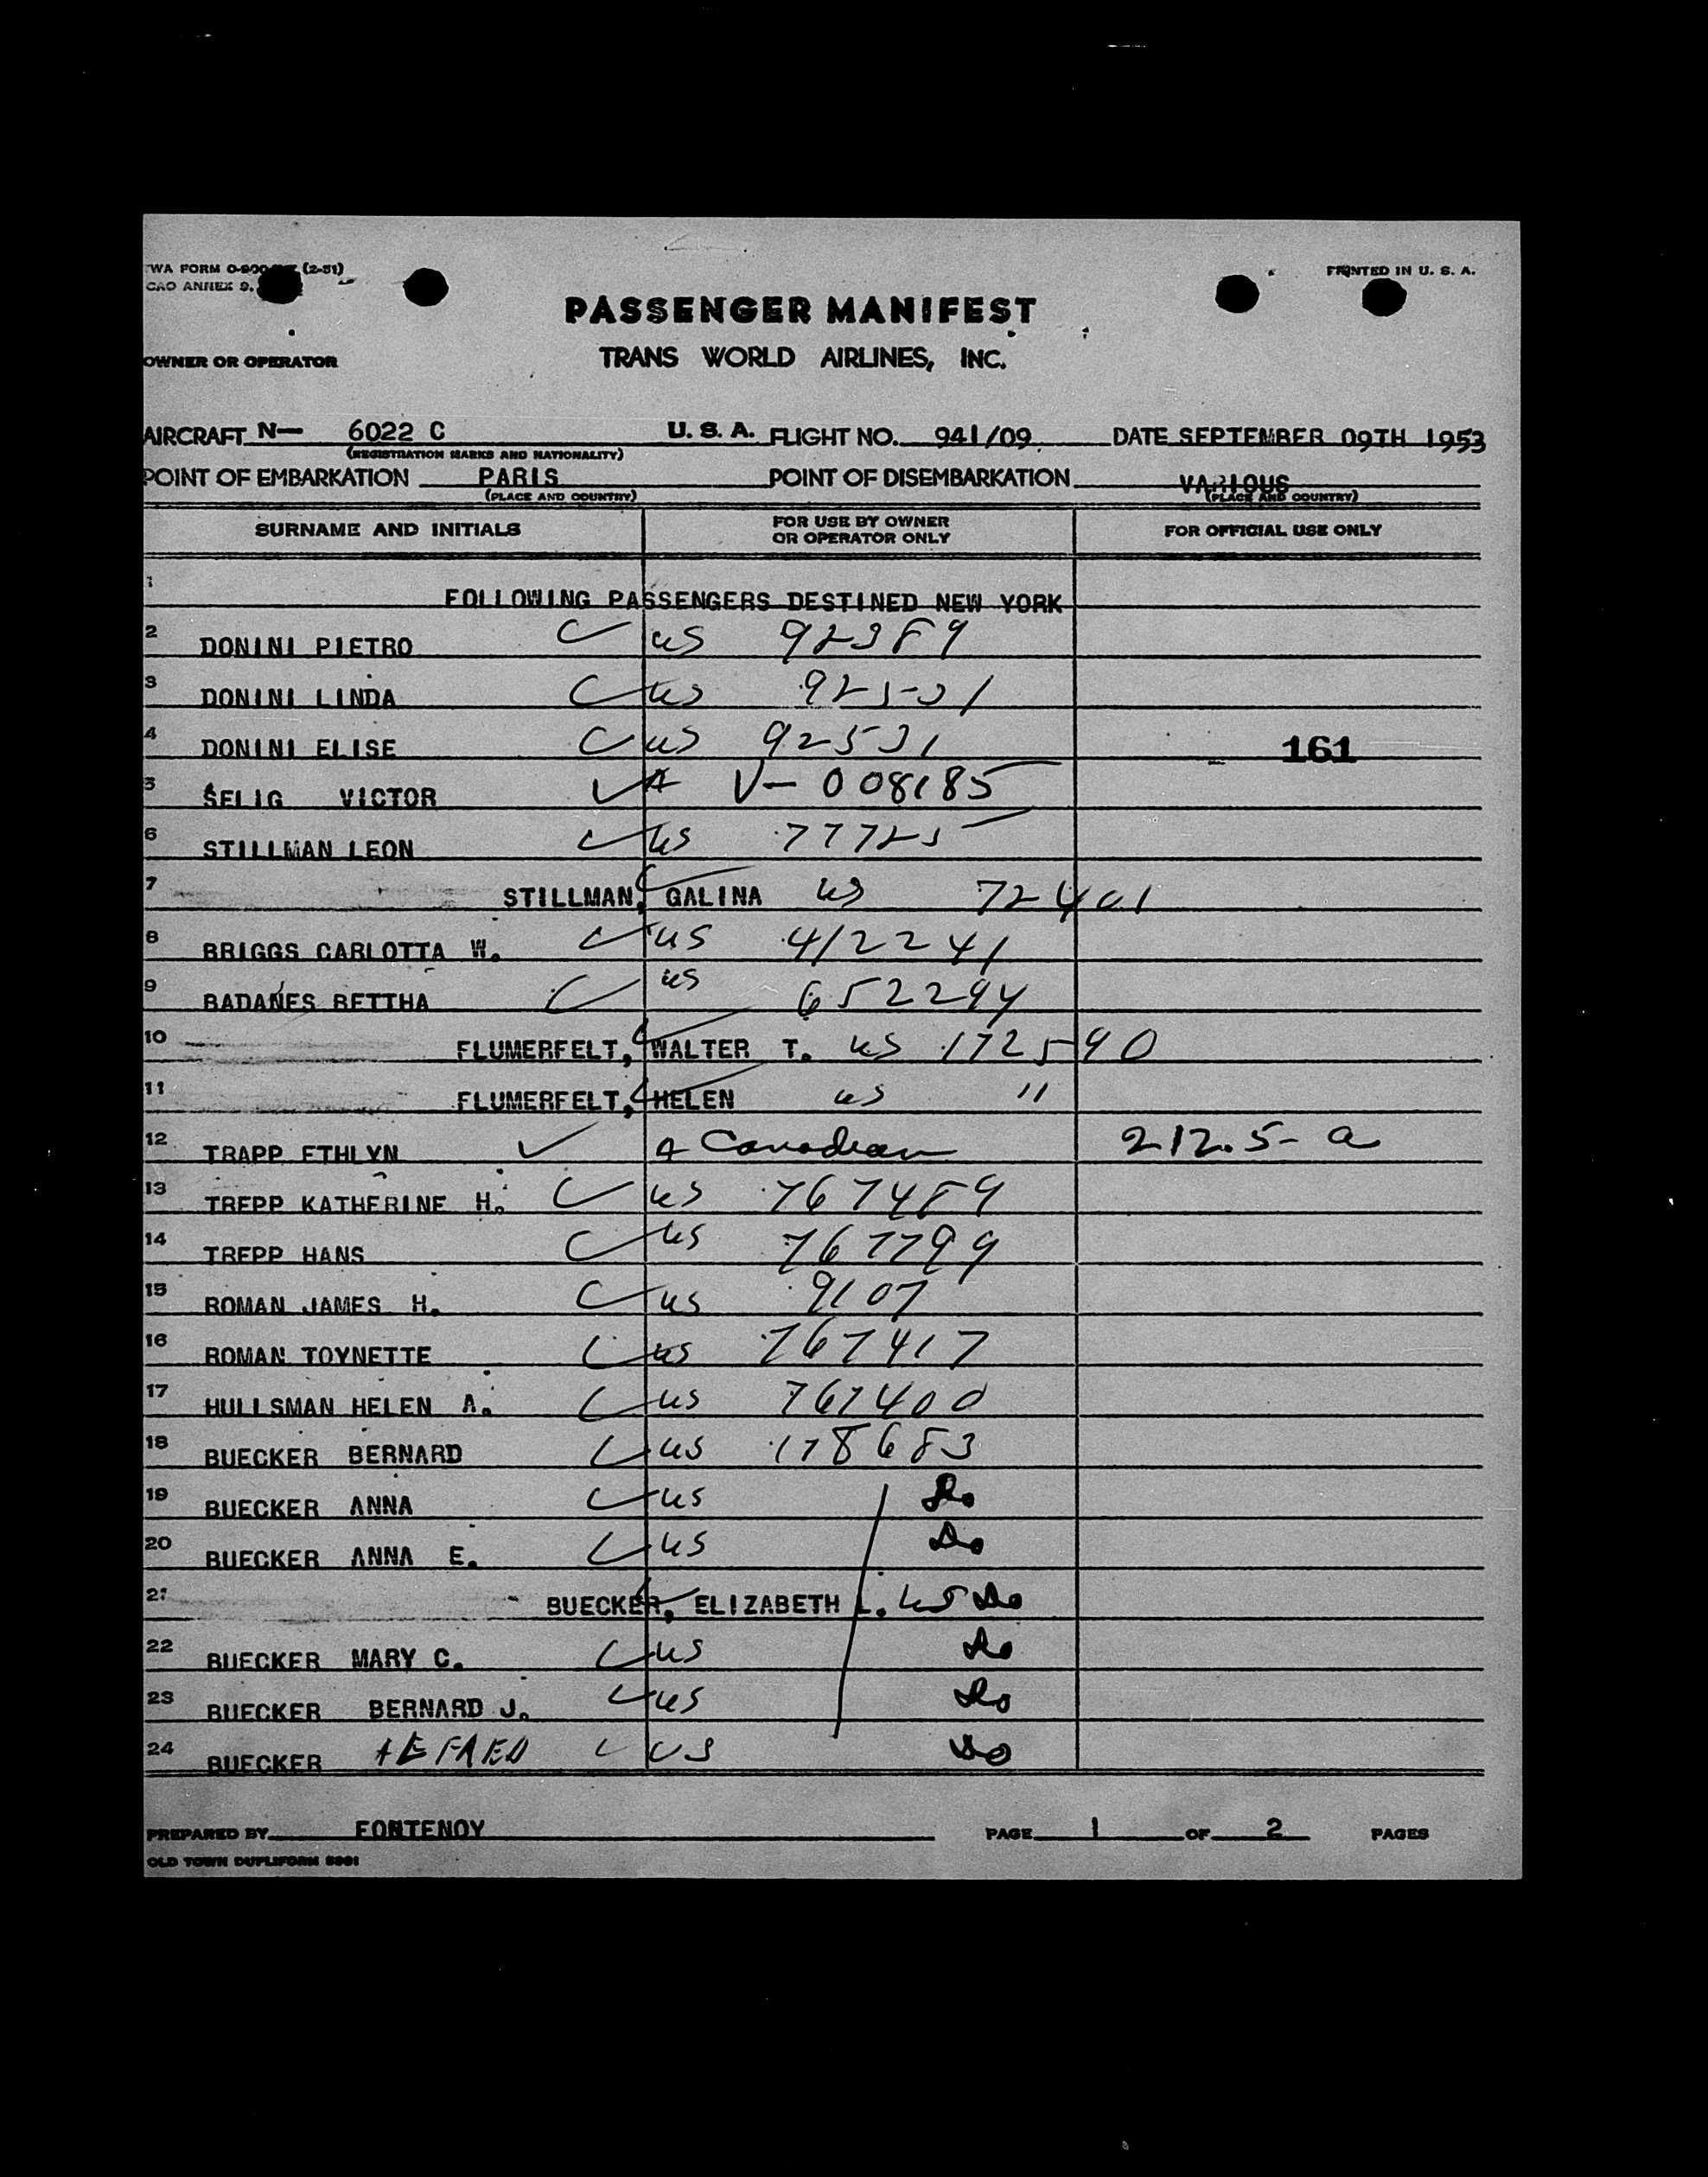 TWA FORM 0-900 (2-51)
CAO ANNEX 9,
PRINTED IN U. S. A.
PASSENGER MANIFEST
OWNER OR OPERATOR TRANS WORLD AIRLINES, INC.
AIRCRAFT N— 6022 C U. S. A. FLIGHT NO. 941/09. DATE SEPTEMBER 09TH 1953
(REGISTRATION MARKS AND NATIONALITY)
POINT OF EMBARKATION PARIS POINT OF DISEMBARKATION VARIOUS
(PLACE AND COUNTRY) (PLACE AND COUNTRY)
SURNAME AND INITIALS FOR USE BY OWNER OR OPERATOR ONLY FOR OFFICIAL USE ONLY
1 FOLLOWING PASSENGERS DESTINED NEW YORK
2 DONINI PIETRO US 92389
3 DONINI LINDA US 92531
4 DONINI ELISE US 92531 161
5 SELIG VICTOR A V- 008185
6 STILLMAN LEON US 77725
7 STILLMAN, GALINA US 72401
8 BRIGGS CARLOTTA W. US 412241
9 BADANES BETTHA US 652294
10 FLUMERFELT, WALTER T. US 172590
11 FLUMERFELT, HELEN US "
12 TRAPP ETHLYN A Canadian 212.5- a
13 TREPP KATHERINE H. US 767489
14 TREPP HANS US 767799
15 ROMAN JAMES H. US 9107
16 ROMAN TOYNETTE US 767417
17 HULLSMAN HELEN A. US 767400
18 BUECKER BERNARD US 178683
19 BUECKER ANNA US Do
20 BUECKER ANNA E. US Do
21 BUECKER, ELIZABETH L. US Do
22 BUECKER MARY C. US Do
23 BUECKER BERNARD J. US Do
24 BUECKER US Do
PREPARED BY FONTENOY PAGE 1 OF 2 PAGES
OLD TOWN DUPLIFORM